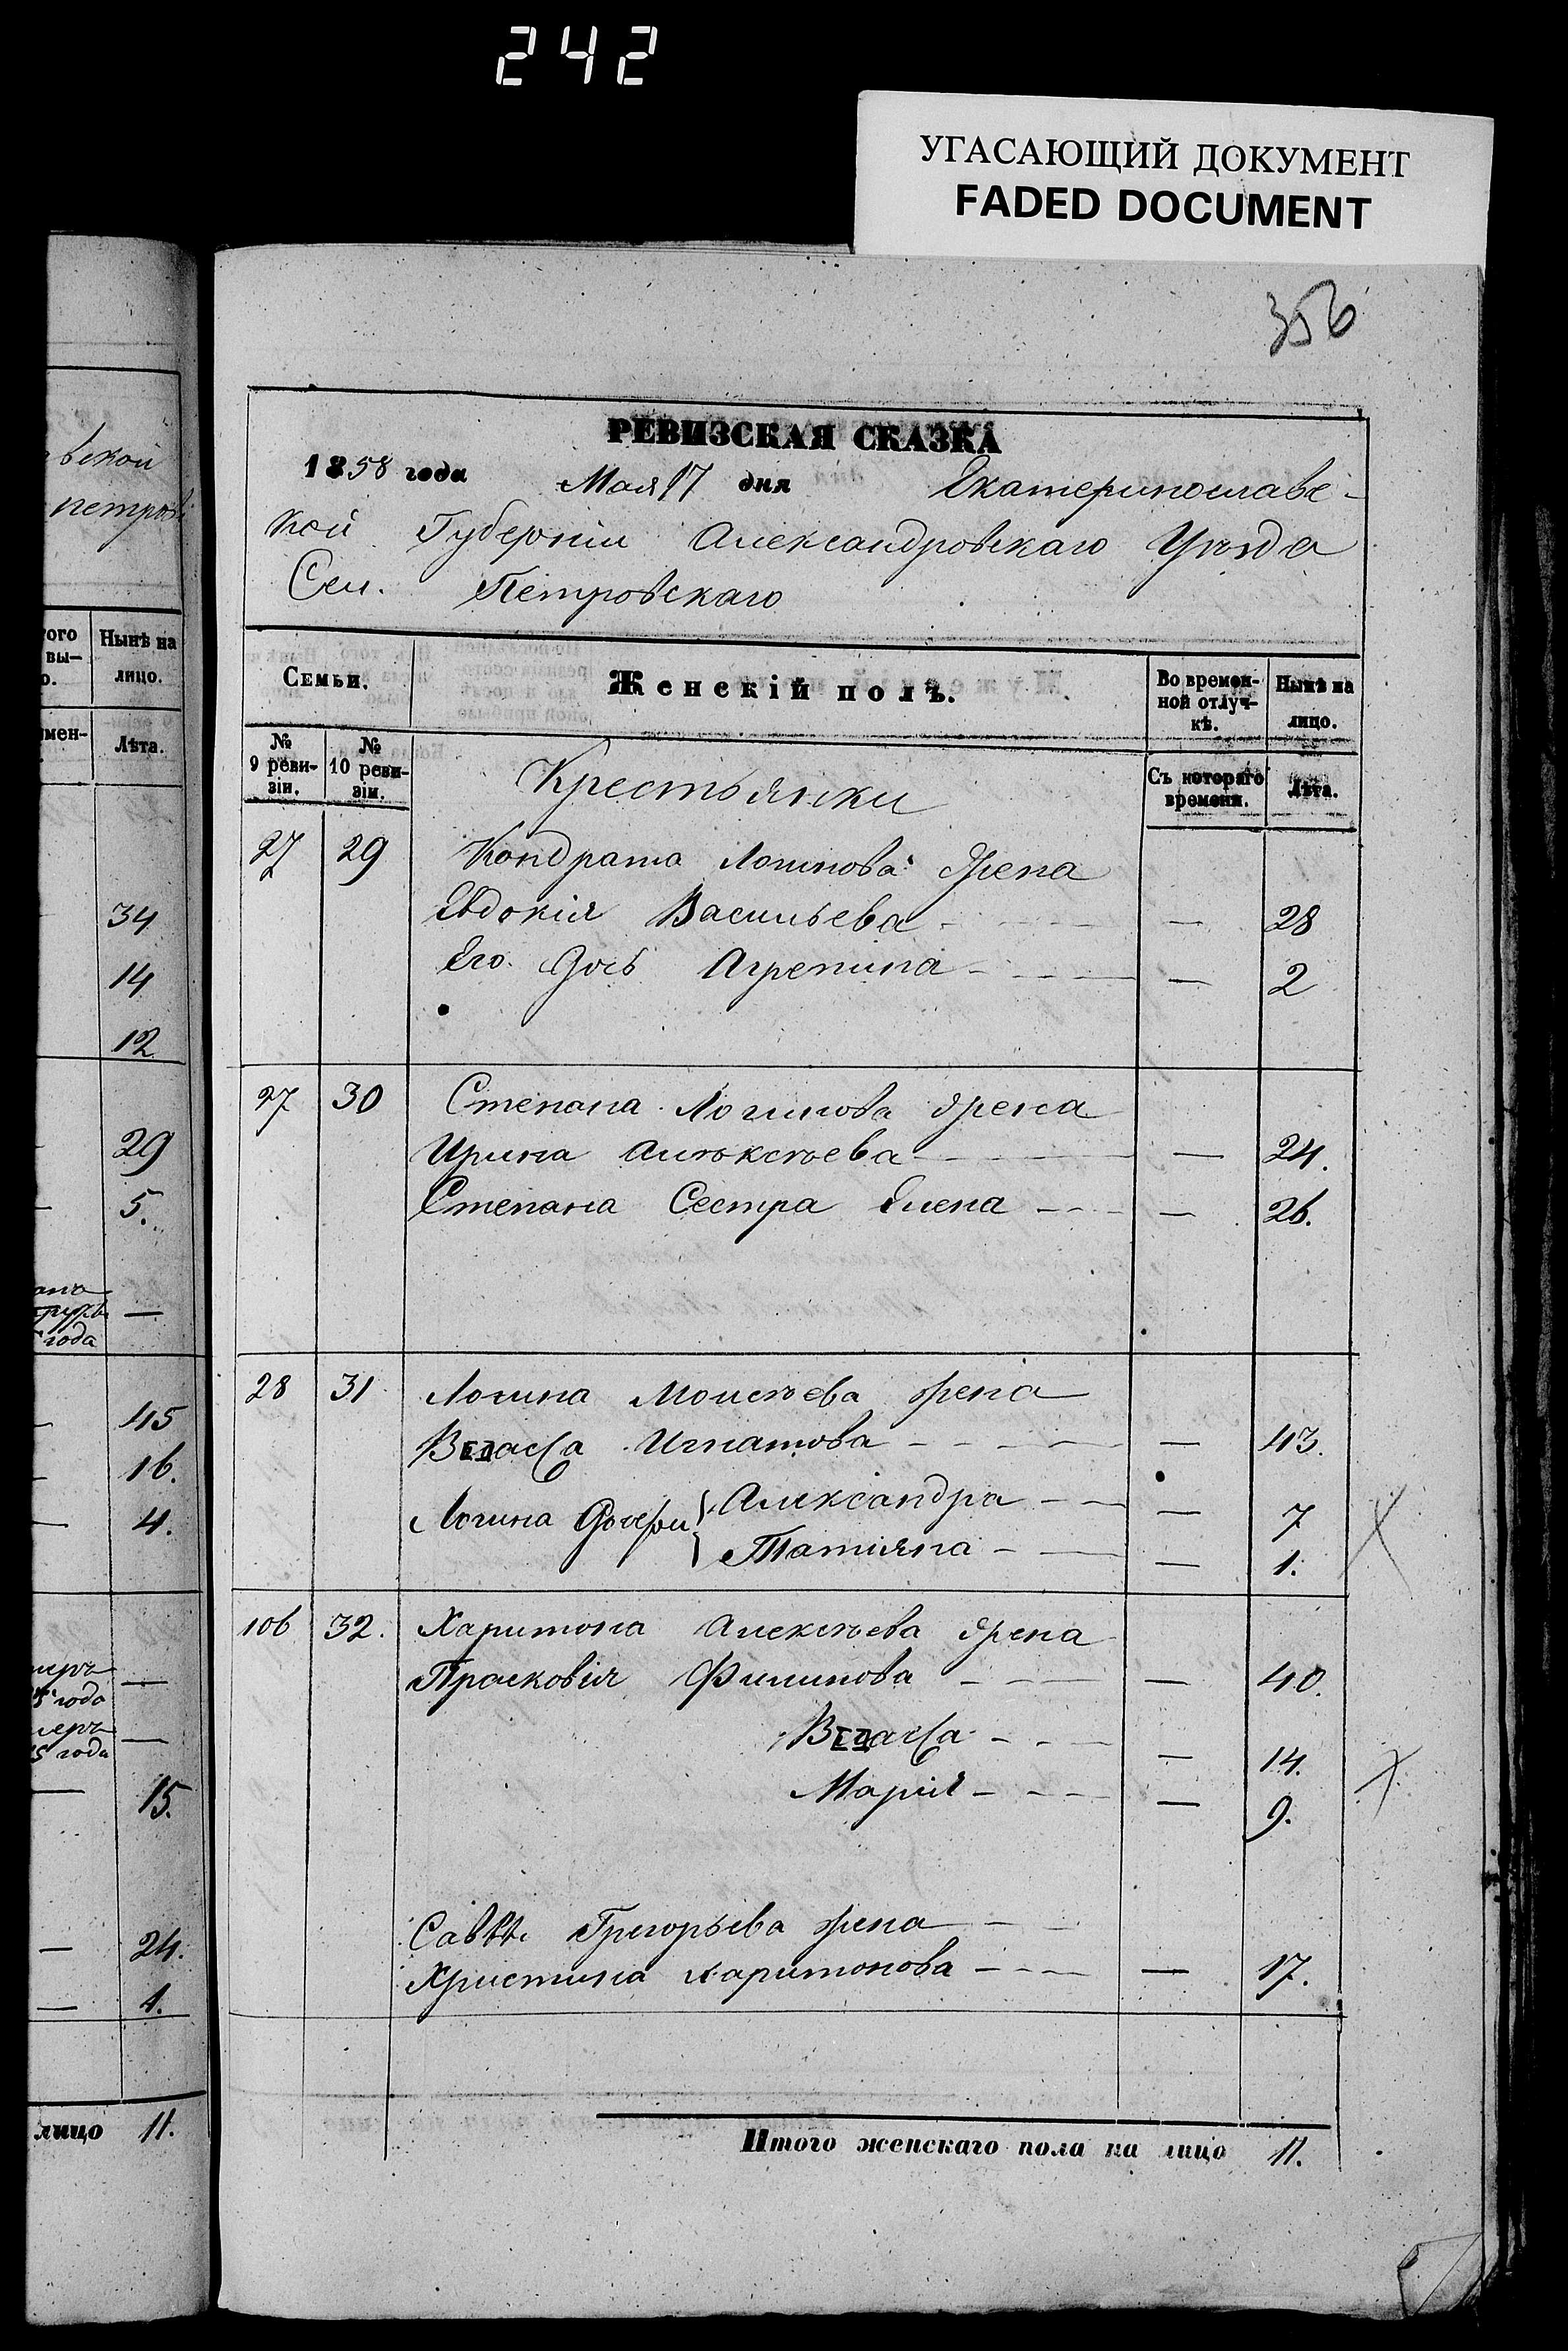 242
УГАСАЮЩИЙ ДОКУМЕНТ
FADED DOCUMENT
356
вской
петров
ого вы-
о.
Нынѣ на
лицо.
мен-
Лѣта.
34
14
12
29
5.
года
45
16.
4.
года
года
15.
24.
1.
лицо 11.
РЕВИЗСКАЯ СКАЗКА
1858 года Мая 17 дня Екатеринославс-
кой Губерніи Александровскаго Уѣзда
Сел. Петровскаго
Семьи.
Женскій полъ.
Во времен-
ной отлуч-
кѣ.
Нынѣ на
лицо.
№
9 реви-
зіи.
№
10 реви-
зіи.
Съ котораго
времени.
Лѣта.
Крестьянки
27 29 Кондрата Логинова жена
Евдокія Васильева — 28
Его Дочь Агрепина — 2
27 30 Степана Логинова жена
Ирина Алѣксѣева — 24.
Степана Сестра Елена — 26.
28 31 Логина Моисѣева жена
Игнатова — 43.
Логина Дочери Александра — 7
Татіяна — 1.
106 32. Харитона Алексѣева жена
Прасковія Филипова — 40.
— 14.
Марія — 9.
Саввы Григорьева жена
Христина Харитонова — 17.
Итого женскаго пола на лицо 11.